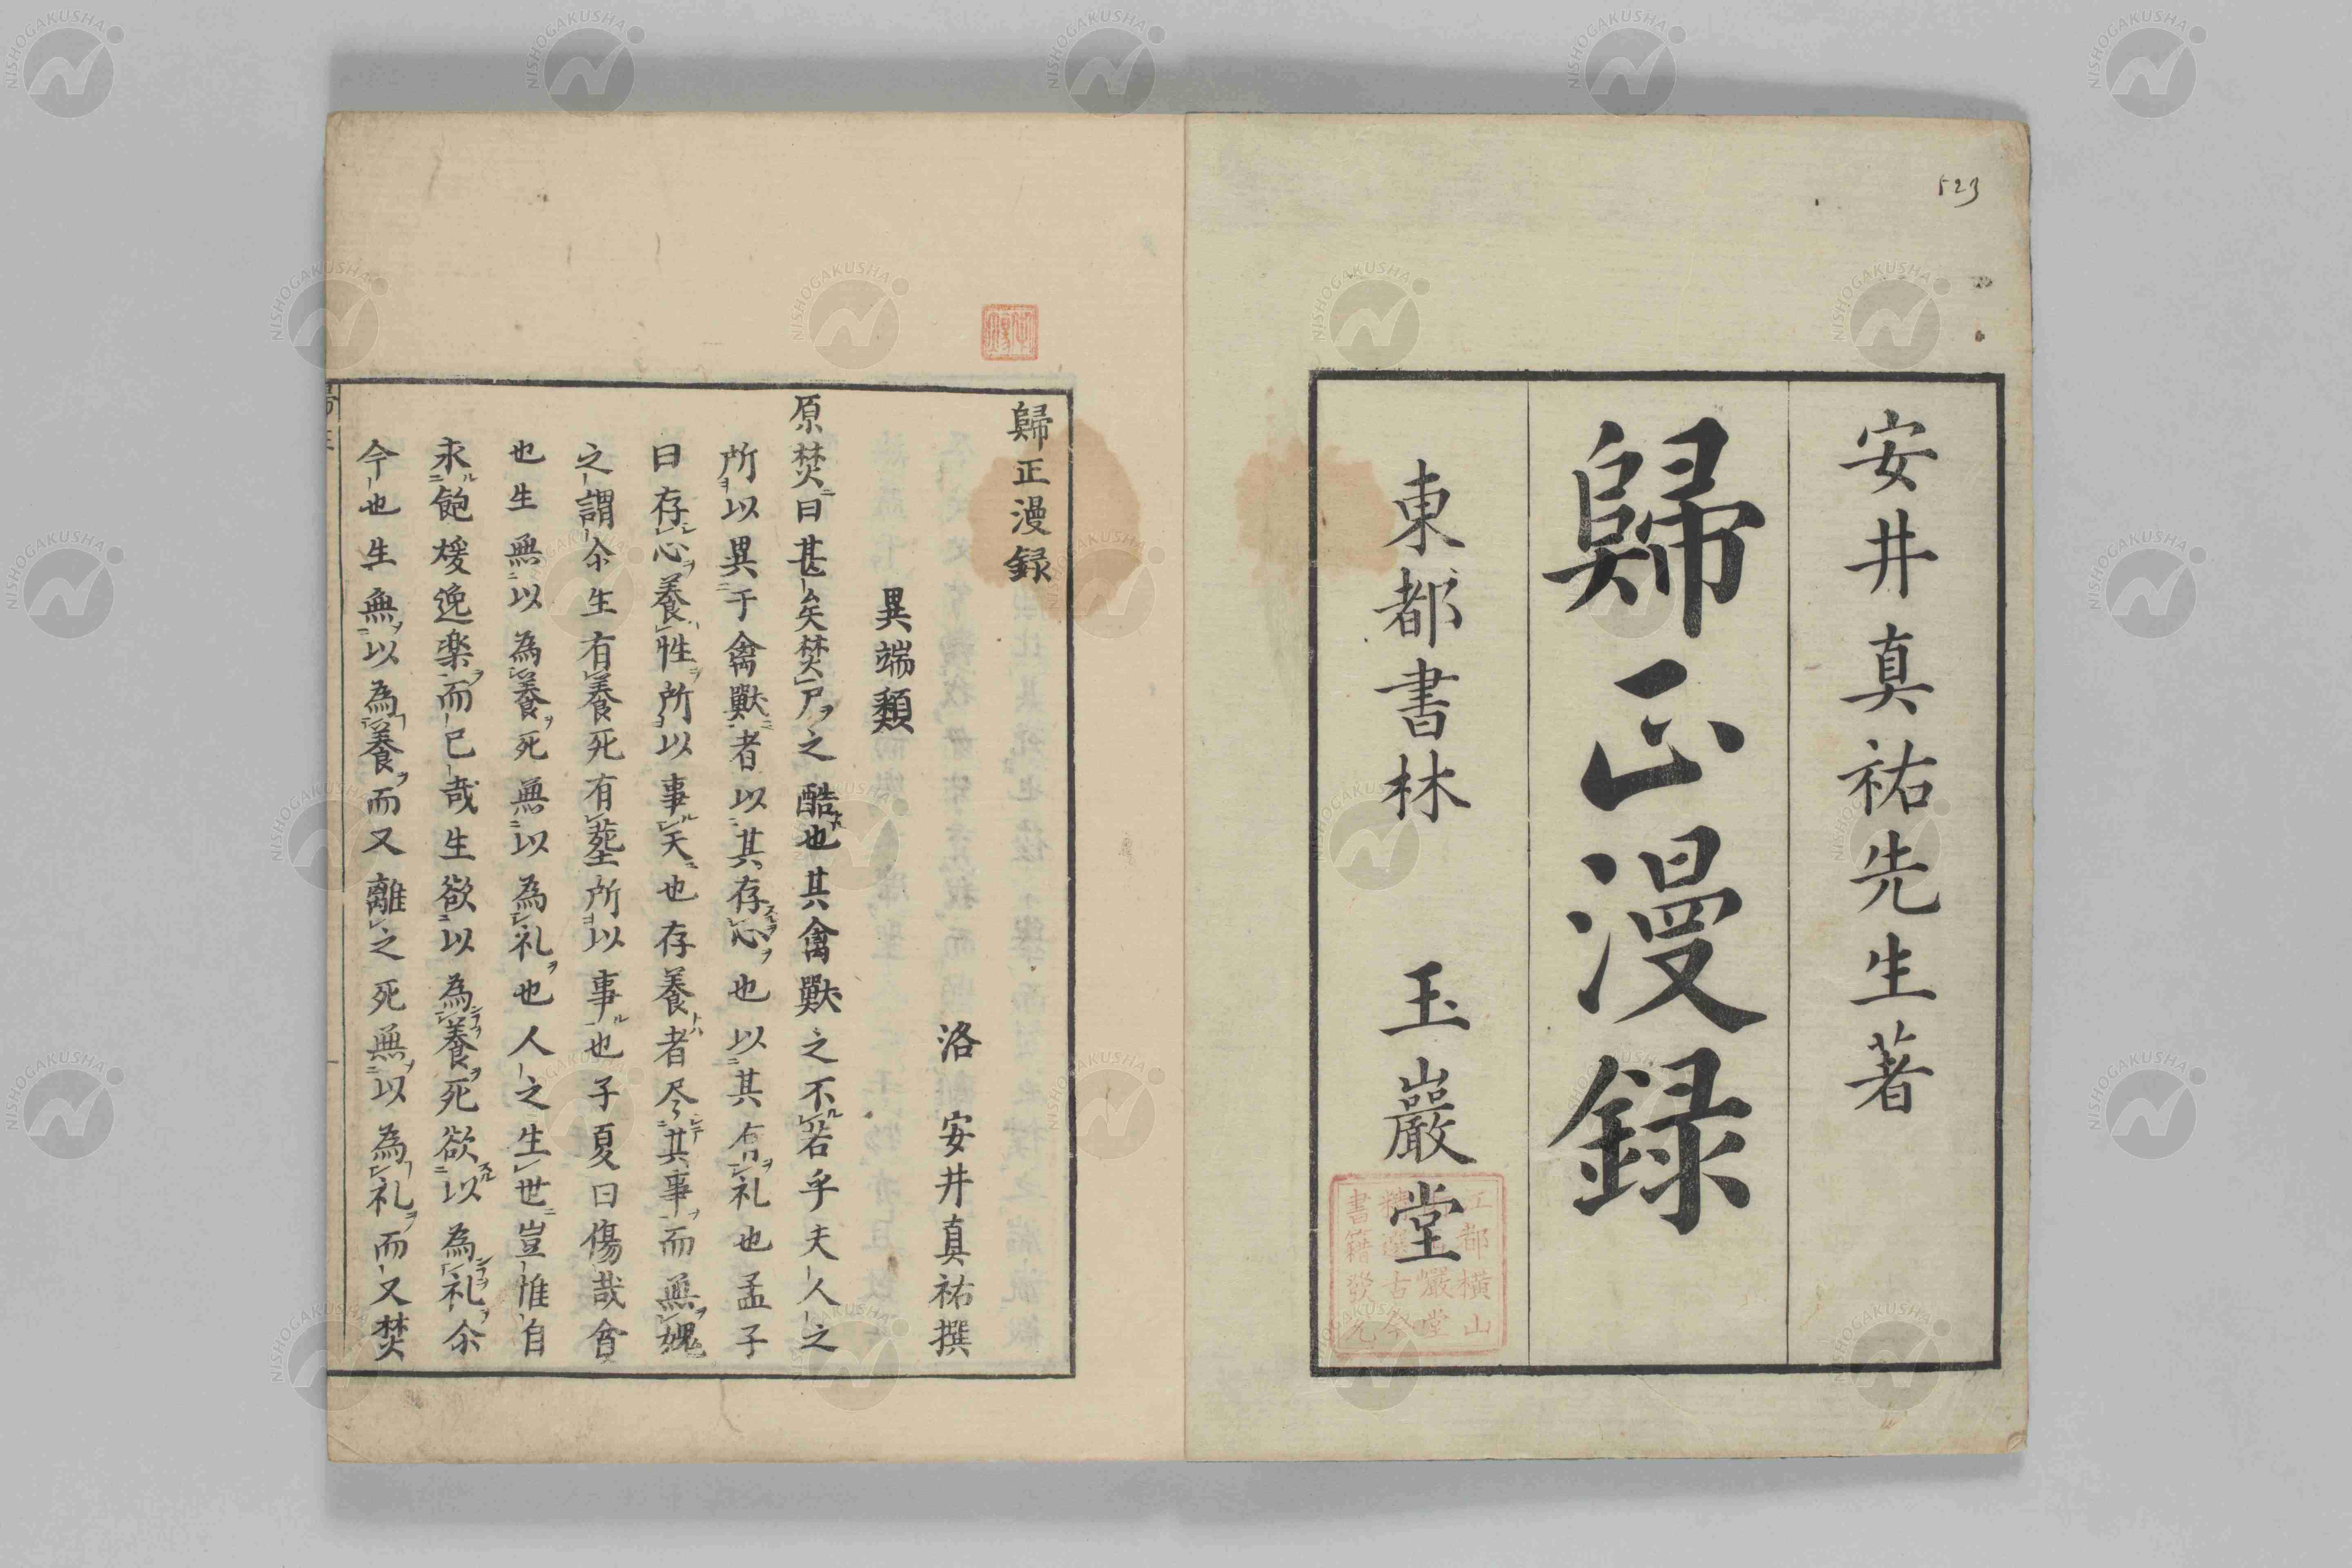 523
安井真祐先生著
歸正漫録
東都書林 玉巖堂
歸正漫録
洛 安井真祐撰
異端類
原焚曰甚矣焚尸之酷也其禽獸之不若乎夫人之
所以異于禽獸者以其存心也以其有礼也孟子
曰存心養性所以事天也存養者尽其事而無媿
之謂尒生有養死有塟所以事也子夏曰傷哉貧
也生無以為養死無以為礼也人之生世豈惟自
求飽煖逸楽而已哉生欲以為養死欲以為礼尒
今也生無以為養而又離之死無以為礼而又焚
NISHOGAKUSHA